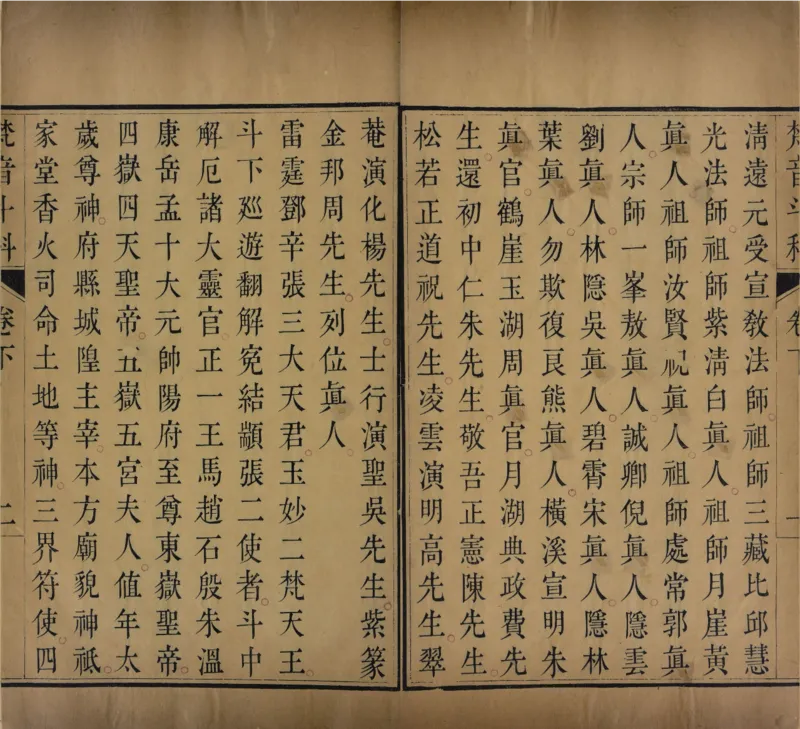 梵音斗科 卷下 一
淸遠元受宣敎法師。祖師三藏比邱慧
光法師祖師紫淸白眞人。祖師月崖黃
眞人祖師汝賢祝眞人。祖師處常郭眞
人。宗師一峯敖眞人。誠卿倪眞人。隱雲
劉眞人。林隱吳眞人。碧霄宋眞人。隱林
葉眞人。勿欺復艮熊眞人。橫溪宣明朱
眞官。鶴崖玉湖周眞官。月湖典政費先
生。還初中仁朱先生。敬吾正憲陳先生。
松若正道祝先生。凌雲演明高先生。翠
菴演化楊先生。士行演聖吳先生。紫篆
金邦周先生。列位眞人。
雷霆鄧辛張三大天君。玉妙二梵天王。
斗下廵遊翻解寃結顓張二使者。斗中
解厄諸大靈官正一王馬趙石殷朱溫
康岳孟十大元帥陽府至尊東嶽聖帝。
四嶽四天聖帝。五嶽五宮夫人。値年太
歲尊神。府縣城隍主宰。本方廟貌神祇。
家堂香火司命土地等神。三界符使。四
梵音斗科 卷下 二